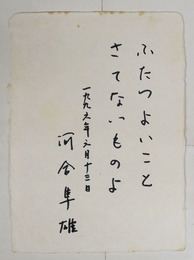 ふたつよいこと
さてないものよ
一九九六年五月十三日
河合隼雄